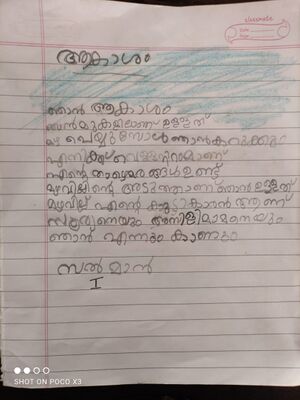 classmate
Date
Page
ആകാശം
ഞാൻ ആകാശം
ഞാൻ മുകളിലാണ് ഉള്ളത്
മഴ പെയ്യുമ്പോൾ ഞാൻ കറുക്കും
എനിക്ക് വെള്ള നിറമാണ്
എന്റെ താഴെ മേഘങ്ങൾ ഉണ്ട്
മഴവില്ലിന്റെ അടുത്താണ് ഞാൻ ഉള്ളത്
മഴവില്ല് എന്റെ കൂട്ടുകാരൻ ആണ്
സൂര്യനെയും അമ്പിളിമാമനെയും
ഞാൻ എന്നും കാണും
സൽമാൻ
I
SHOT ON POCO X3